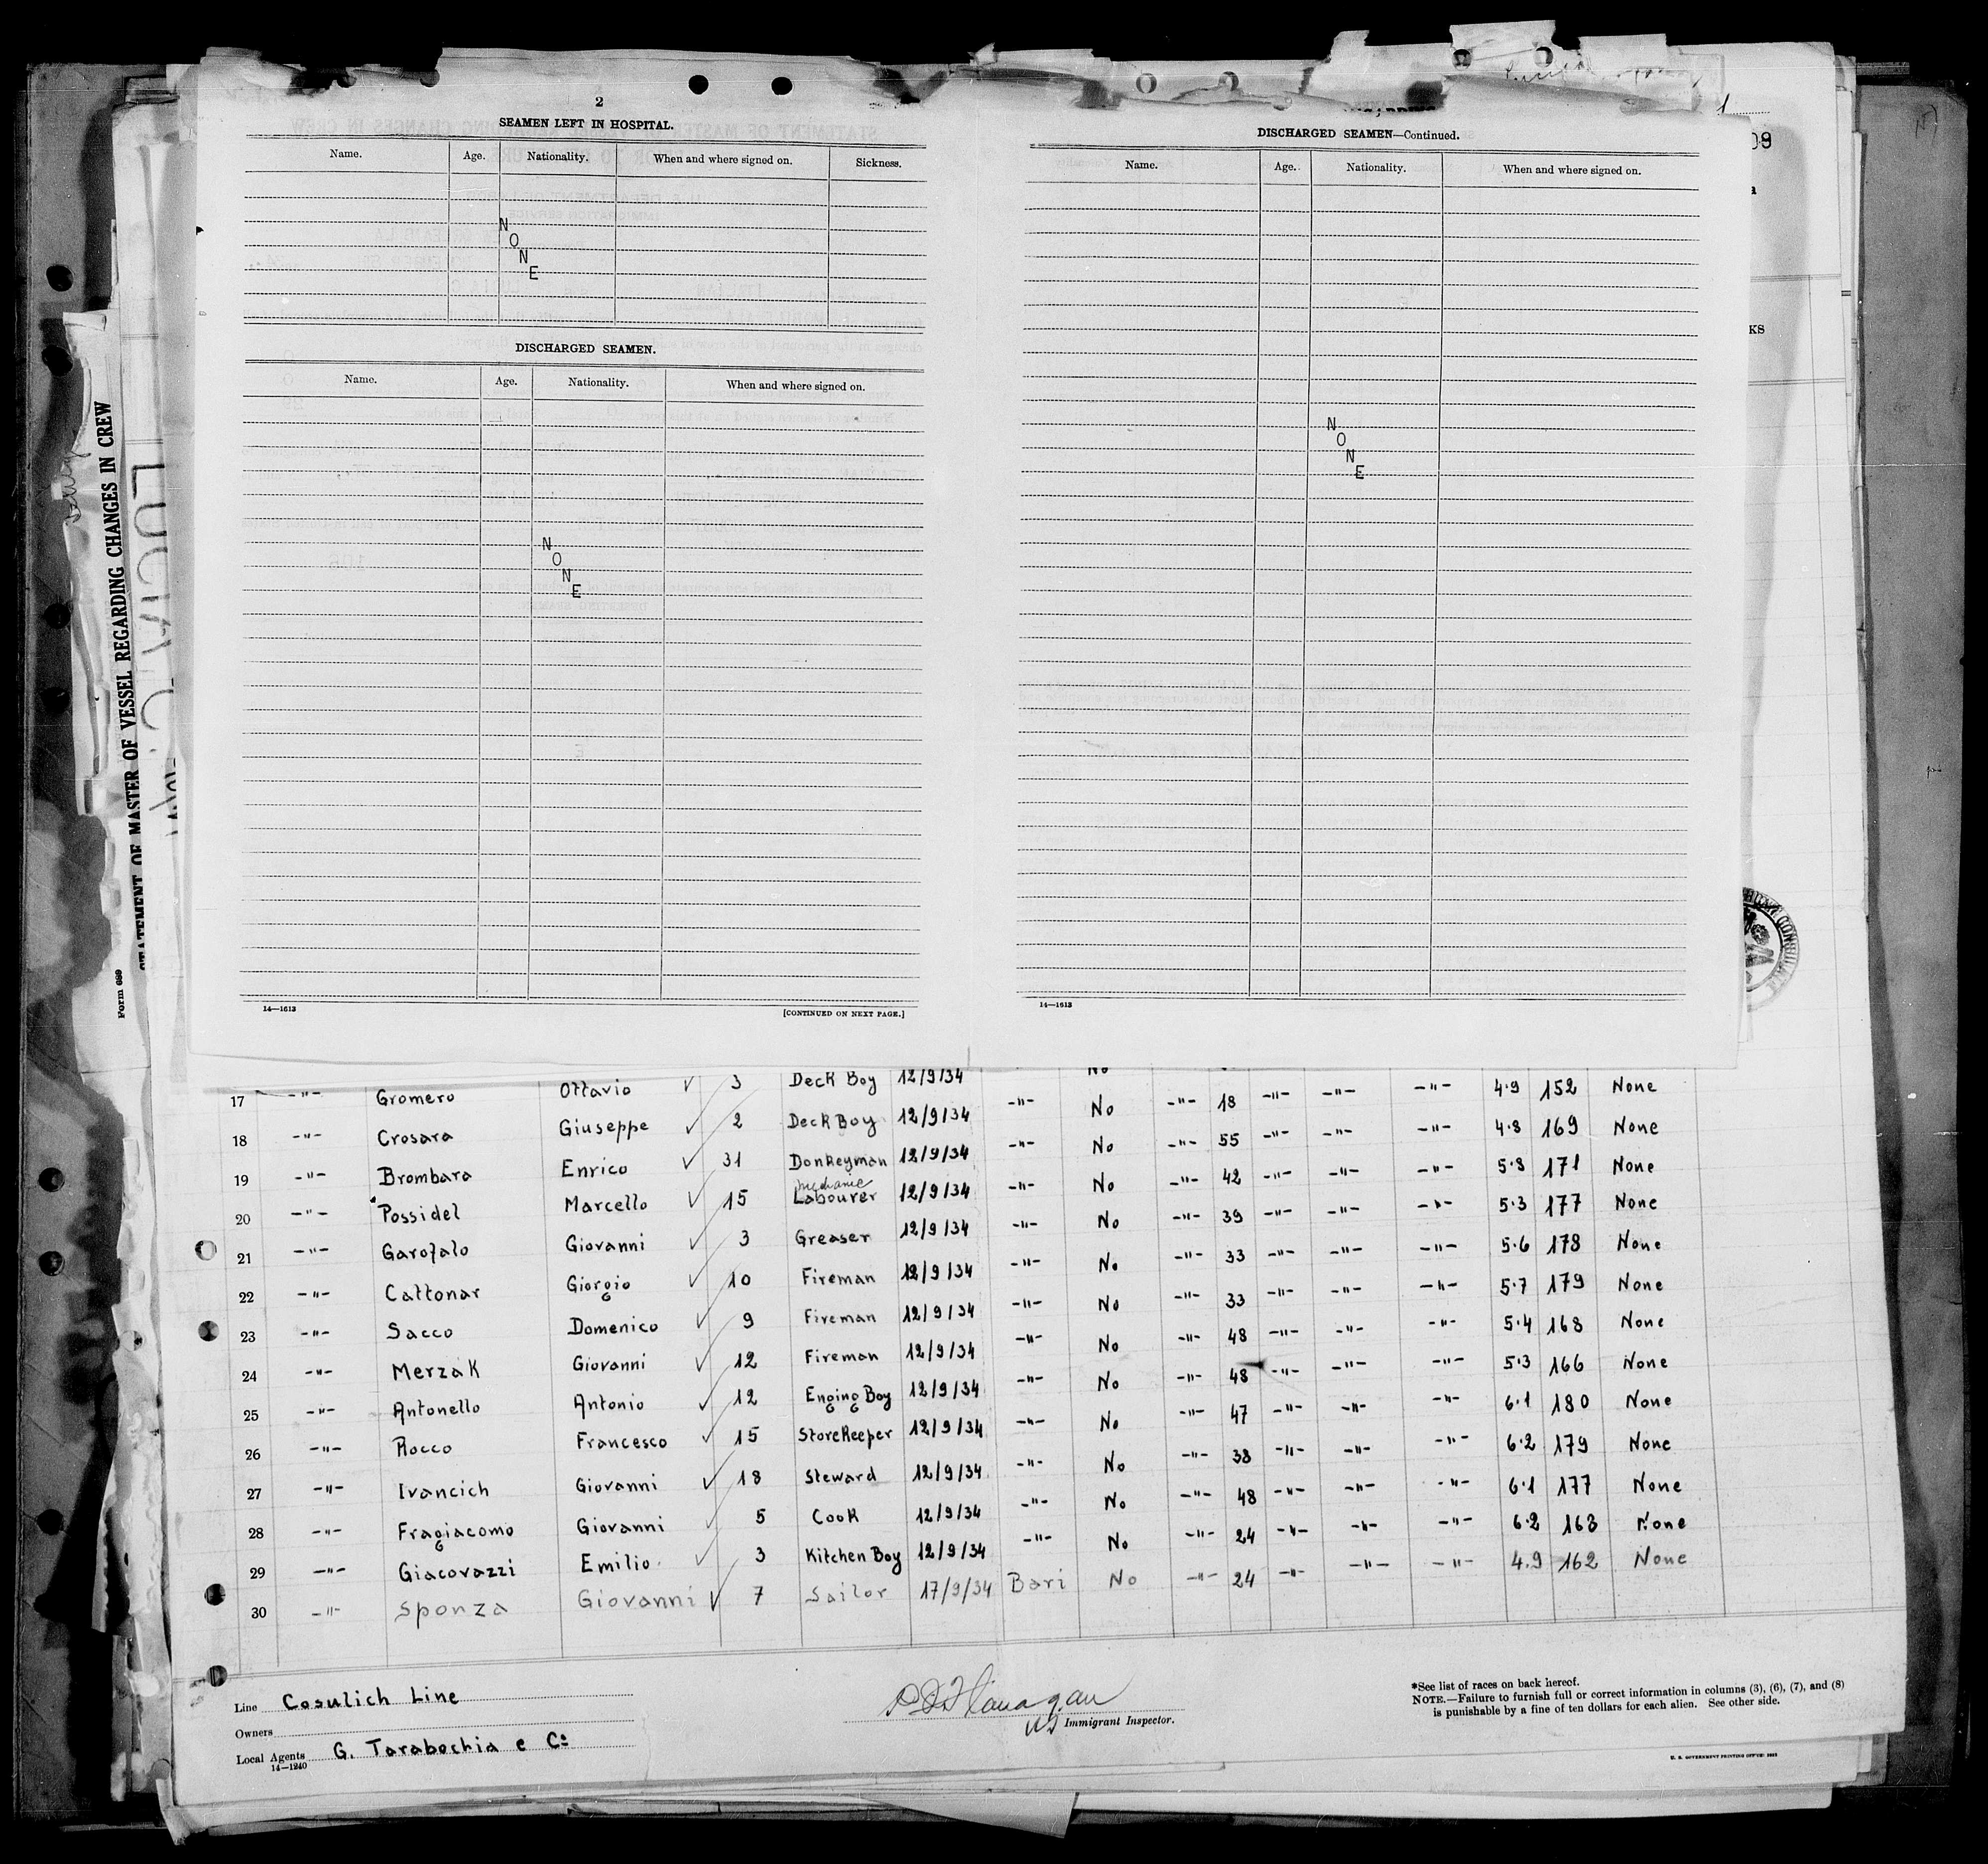 2
SEAMEN LEFT IN HOSPITAL.
Name. Age. Nationality. When and where signed on. Sickness.
N
O
N
E
DISCHARGED SEAMEN.
Name. Age. Nationality. When and where signed on.
N
O
N
E
14—1613 [CONTINUED ON NEXT PAGE.]
DISCHARGED SEAMEN—Continued.
Name. Age. Nationality. When and where signed on.
N
O
N
E
14—1613
1
09
KS
STATEMENT OF MASTER OF VESSEL REGARDING CHANGES IN CREW
STATEMENT OF MASTER OF VESSEL REGARDING CHANGES IN CREW
Form 689
LUCIA C.
17 -"- Gromero Ottavio ✓ 3 Deck Boy 12/9/34 -"- No -"- 18 -"- -"- -"- 4·9 152 None
18 -"- Crosara Giuseppe ✓ 2 Deck Boy 12/9/34 -"- No -"- 55 -"- -"- -"- 4·8 169 None
19 -"- Brombara Enrico ✓ 31 Donkeyman 12/9/34 -"- No -"- 42 -"- -"- -"- 5·8 171 None
mechanic
20 -"- Possidel Marcello ✓ 15 Labourer 12/9/34 -"- No -"- 39 -"- -"- -"- 5·3 177 None
21 -"- Garofalo Giovanni ✓ 3 Greaser 12/9/34 -"- No -"- 33 -"- -"- -"- 5·6 178 None
22 -"- Cattonar Giorgio ✓ 10 Fireman 12/9/34 -"- No -"- 33 -"- -"- -"- 5·7 179 None
23 -"- Sacco Domenico ✓ 9 Fireman 12/9/34 -"- No -"- 48 -"- -"- -"- 5·4 168 None
24 -"- Merzak Giovanni ✓ 12 Fireman 12/9/34 -"- No -"- 48 -"- -"- -"- 5·3 166 None
25 -"- Antonello Antonio ✓ 12 Enging Boy 12/9/34 -"- No -"- 47 -"- -"- -"- 6·1 180 None
26 -"- Rocco Francesco ✓ 15 Storekeeper 12/9/34 -"- No -"- 38 -"- -"- -"- 6·2 179 None
27 -"- Ivancich Giovanni ✓ 18 Steward 12/9/34 -"- No -"- 48 -"- -"- -"- 6·1 177 None
28 -"- Fragiacomo Giovanni ✓ 5 Cook 12/9/34 -"- No -"- 24 -"- -"- -"- 6·2 163 None
29 -"- Giacovazzi Emilio ✓ 3 Kitchen Boy 12/9/34 -"- No -"- 24 -"- -"- -"- 4.9 162 None
30 -"- Sponza Giovanni ✓ 7 Sailor 17/9/34 Bari No
Line Cosulich Line
Owners
Local Agents G. Tarabochia e Co
14—1240
Flanagan
US Immigrant Inspector.
*See list of races on back hereof.
NOTE.—Failure to furnish full or correct information in columns (3), (6), (7), and (8)
is punishable by a fine of ten dollars for each alien. See other side.
U. S. GOVERNMENT PRINTING OFFICE: